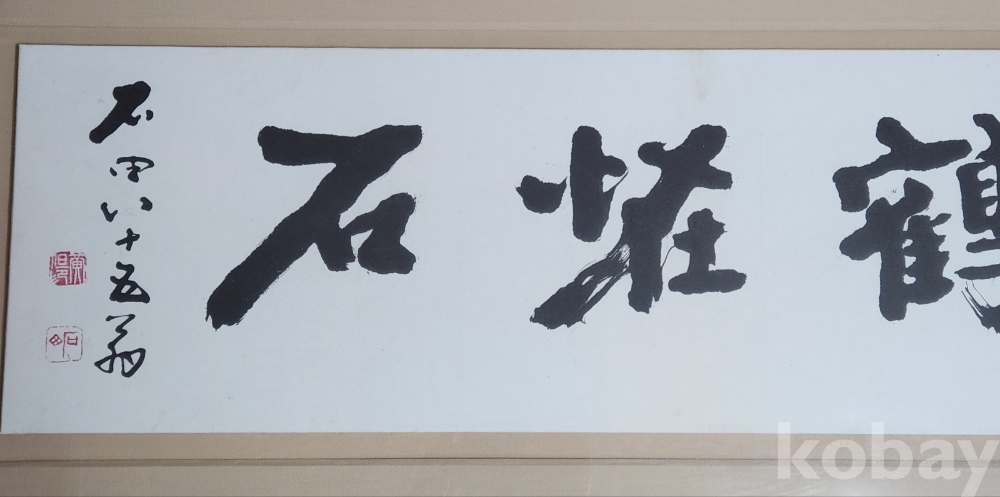 鶴 石
石田八十五翁
石田
kobay